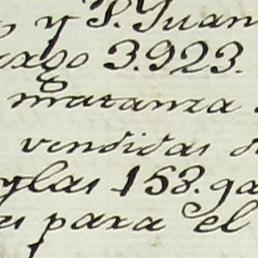 y P. Juan
3.923.
matanza
vendidas
glas 153. ga
para el